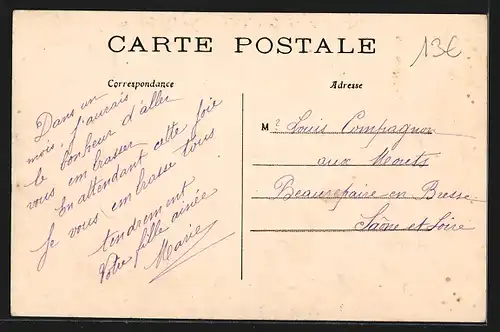 13€
CARTE POSTALE
Correspondance
Adresse
Dans un
mois j'aurais
le bonheur d'aller
vous embrasser
En attendant cette joie
Je vous embrasse tous
tendrement
Votre fille ainée
Marie
M r Louis Compagnon
aux Morets
Beaurepaire en Bresse
Saône et Loire